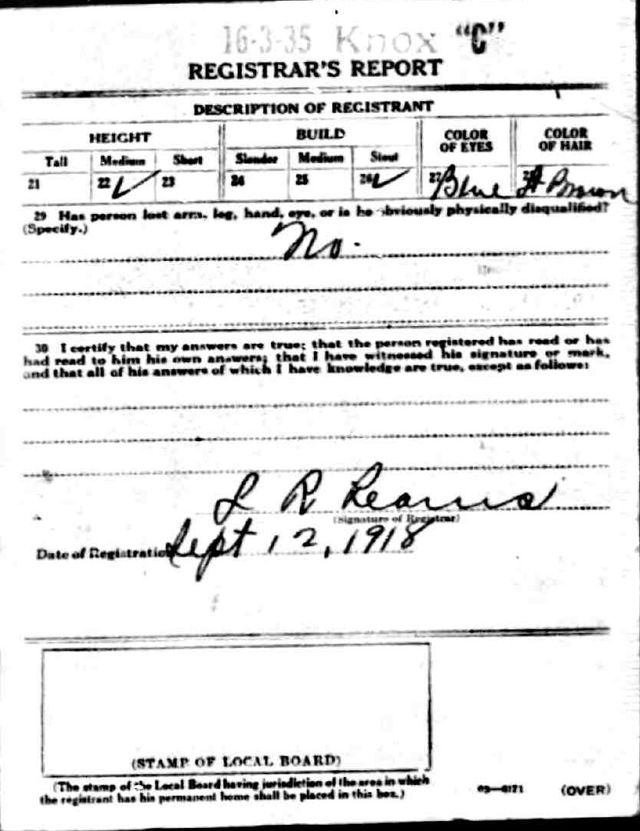 16-3-35 Knox "C"
REGISTRAR'S REPORT
DESCRIPTION OF REGISTRANT
HEIGHT BUILD COLOR OF EYES COLOR OF HAIR
Tall Medium Short Slender Medium Stout
21 22 ✓ 23 24 25 26 ✓ 27 Blue Brown
29 Has person lost arm, leg, hand, eye, or is he obviously physically disqualified?
(Specify.)
No.
30 I certify that my answers are true; that the person registered has read or has
had read to him his own answers; that I have witnessed his signature or mark,
and that all of his answers of which I have knowledge are true, except as follows:
L R
(Signature of Registrar)
Date of Registration Sept 12, 1918
(STAMP OF LOCAL BOARD)
(The stamp of the Local Board having jurisdiction of the area in which
the registrant has his permanent home shall be placed in this box.)
03—6171 (OVER)